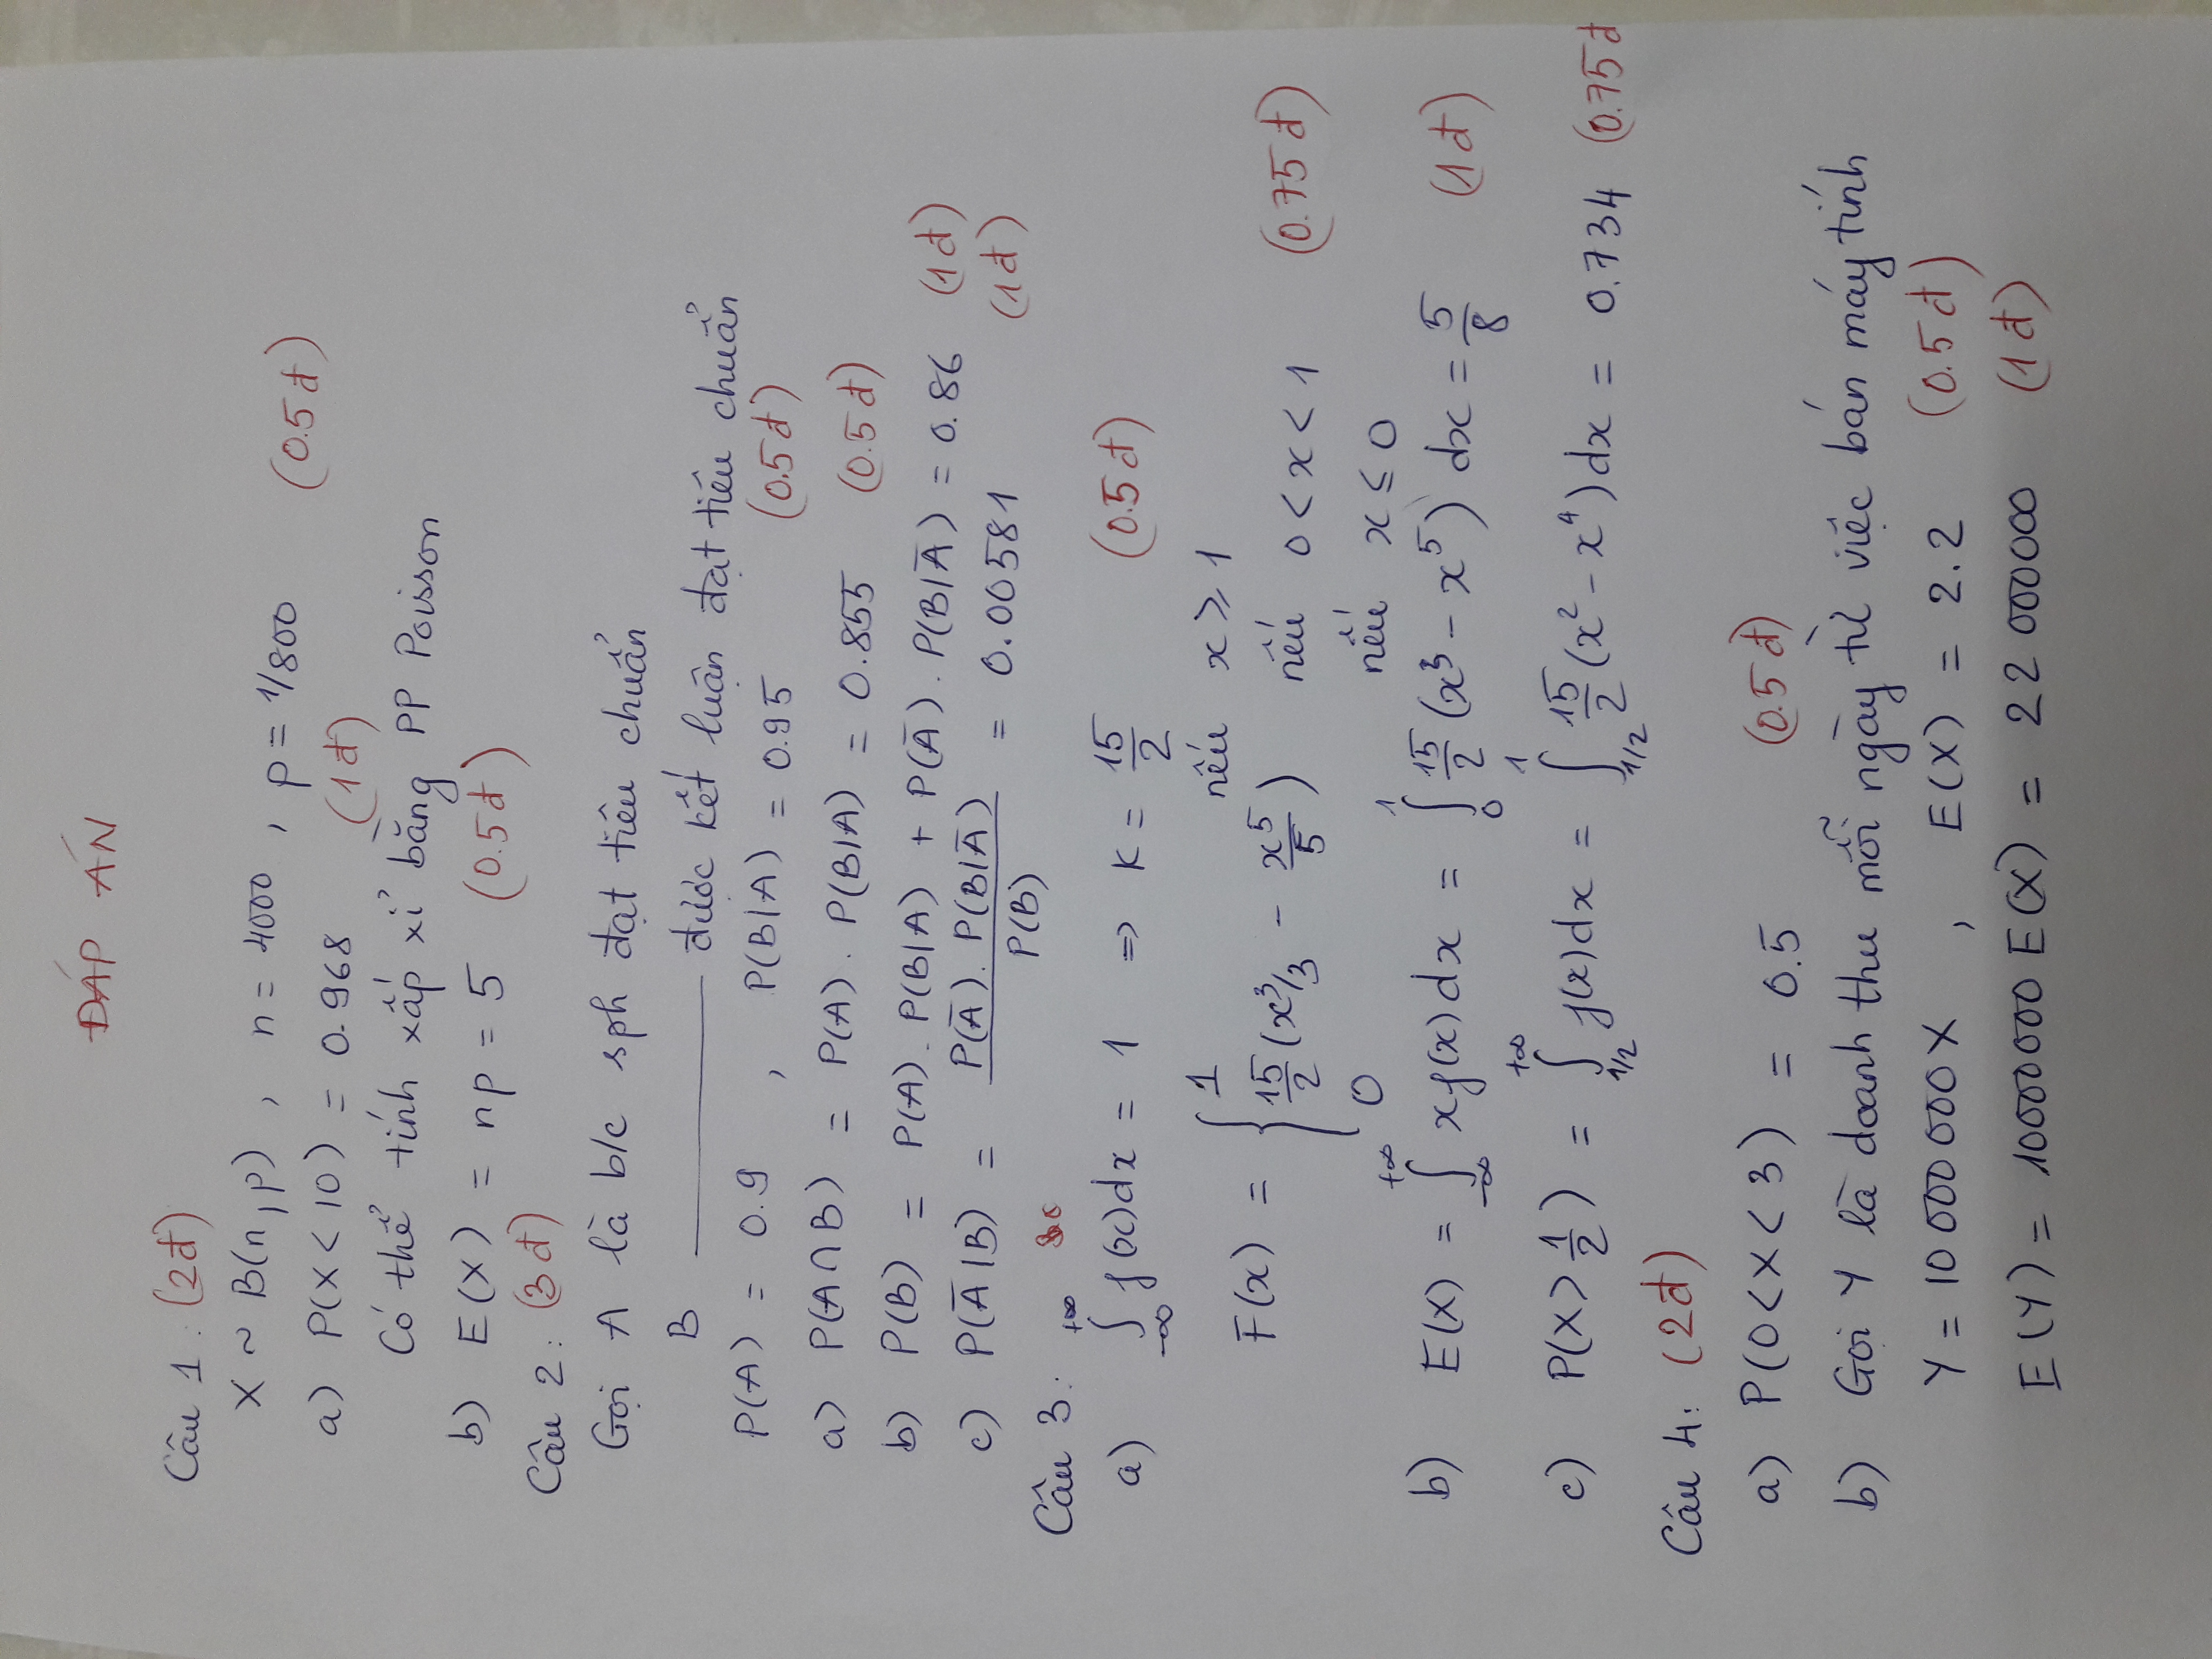 ĐÁP ÁN
Câu 1 : (2đ)
X ~ B(n,p) , n = 4000 , p = 1/800 (0.5đ)
a) P(X < 10) = 0.968 (1đ)
Có thể tính xấp xỉ bằng PP Poisson
b) E(X) = np = 5 (0.5đ)
Câu 2 : (3đ)
Gọi A là b/c sph đạt tiêu chuẩn
B ——— được kết luận đạt tiêu chuẩn
P(A) = 0.9 , P(B|A) = 0.95 (0.5đ)
a) P(A∩B) = P(A) . P(B|A) = 0.855 (0.5đ)
b) P(B) = P(A) . P(B|A) + P(Ā) . P(B|Ā) = 0.86 (1đ)
c) P(Ā|B) = P(Ā) . P(B|Ā) / P(B) = 0.00581 (1đ)
Câu 3 :
a) ∫_{-∞}^{+∞} f(x)dx = 1 => K = 15/2 (0.5đ)
F(x) = { 1 nếu x ≥ 1
15/2 (x³/3 - x⁵/5) nếu 0 < x < 1 (0.75đ)
0 nếu x ≤ 0
b) E(X) = ∫_{-∞}^{+∞} xf(x)dx = ∫_0^1 15/2 (x³ - x⁵) dx = 5/8 (1đ)
c) P(X > 1/2) = ∫_{1/2}^{+∞} f(x)dx = ∫_{1/2}^1 15/2 (x² - x⁴)dx = 0.734 (0.75đ
Câu 4 : (2đ)
a) P(0 < X < 3) = 0.5 (0.5đ)
b) Gọi Y là doanh thu mỗi ngày từ việc bán máy tính
Y = 10 000 000 X , E(X) = 2.2 (0.5đ)
E(Y) = 10000000 E(X) = 22 000000 (1đ)